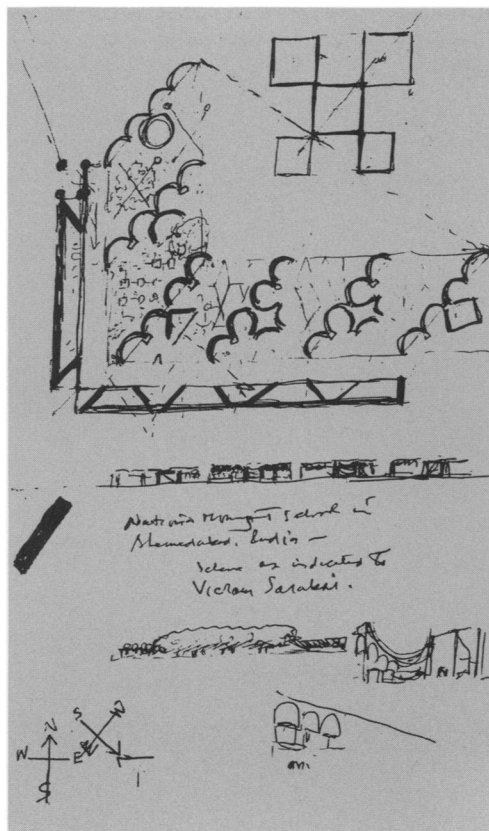 National Management School in
Ahmedabad. India —
Scheme as indicated to
Vicram Sarabai.
N
W
E
S
S
N